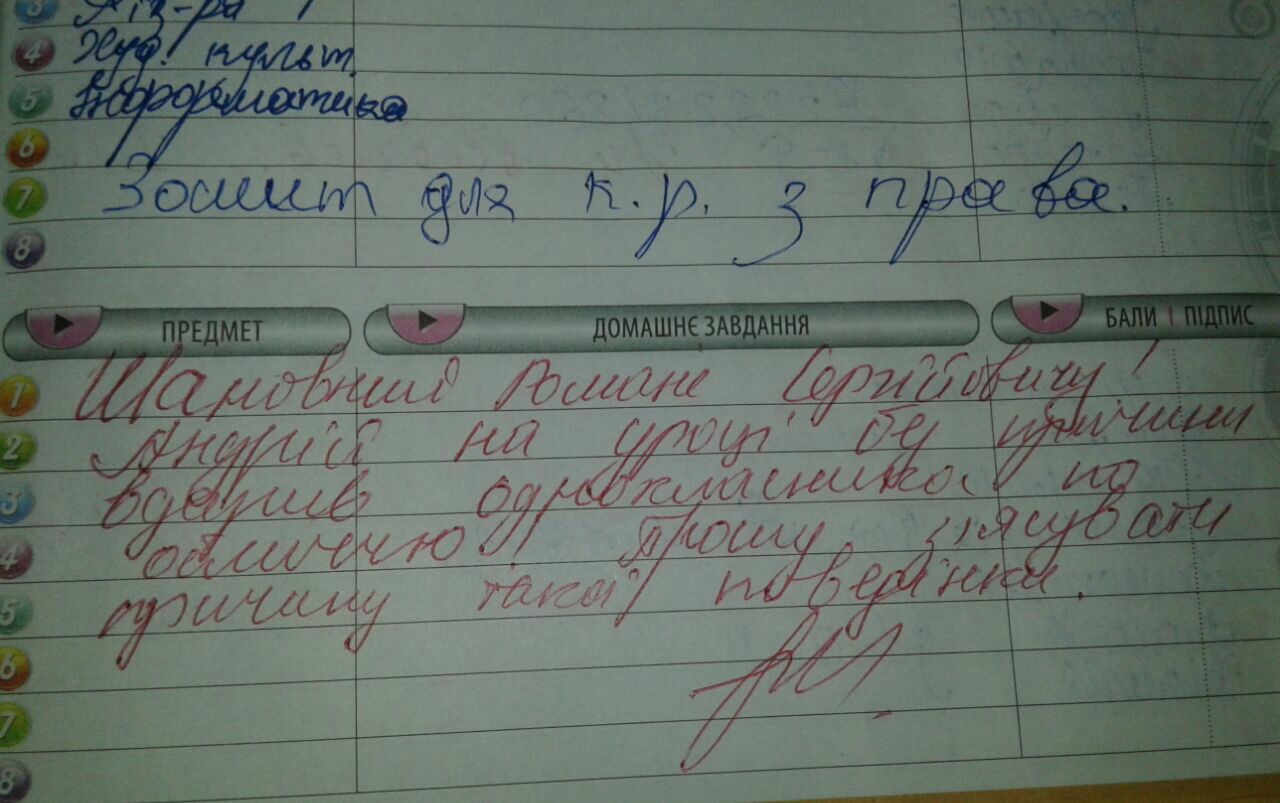 3 Фіз-ра
4 Худ. культ.
5 Інформатика
6
7 Зошит для к.р. з права.
8
ПРЕДМЕТ ДОМАШНЄ ЗАВДАННЯ БАЛИ | ПІДПИС
1 Шановний Романе Сергійовичу!
2 Андрій на уроці без причини
3 вдарив однокласника по
4 обличчю. Прошу з'ясувати
5 причину такої поведінки.
6
7
8